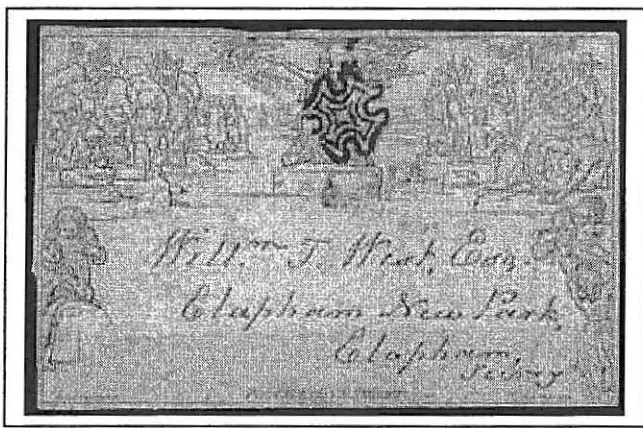 Will.m T. West, Esq.
Clapham New Park,
Clapham,
Surrey